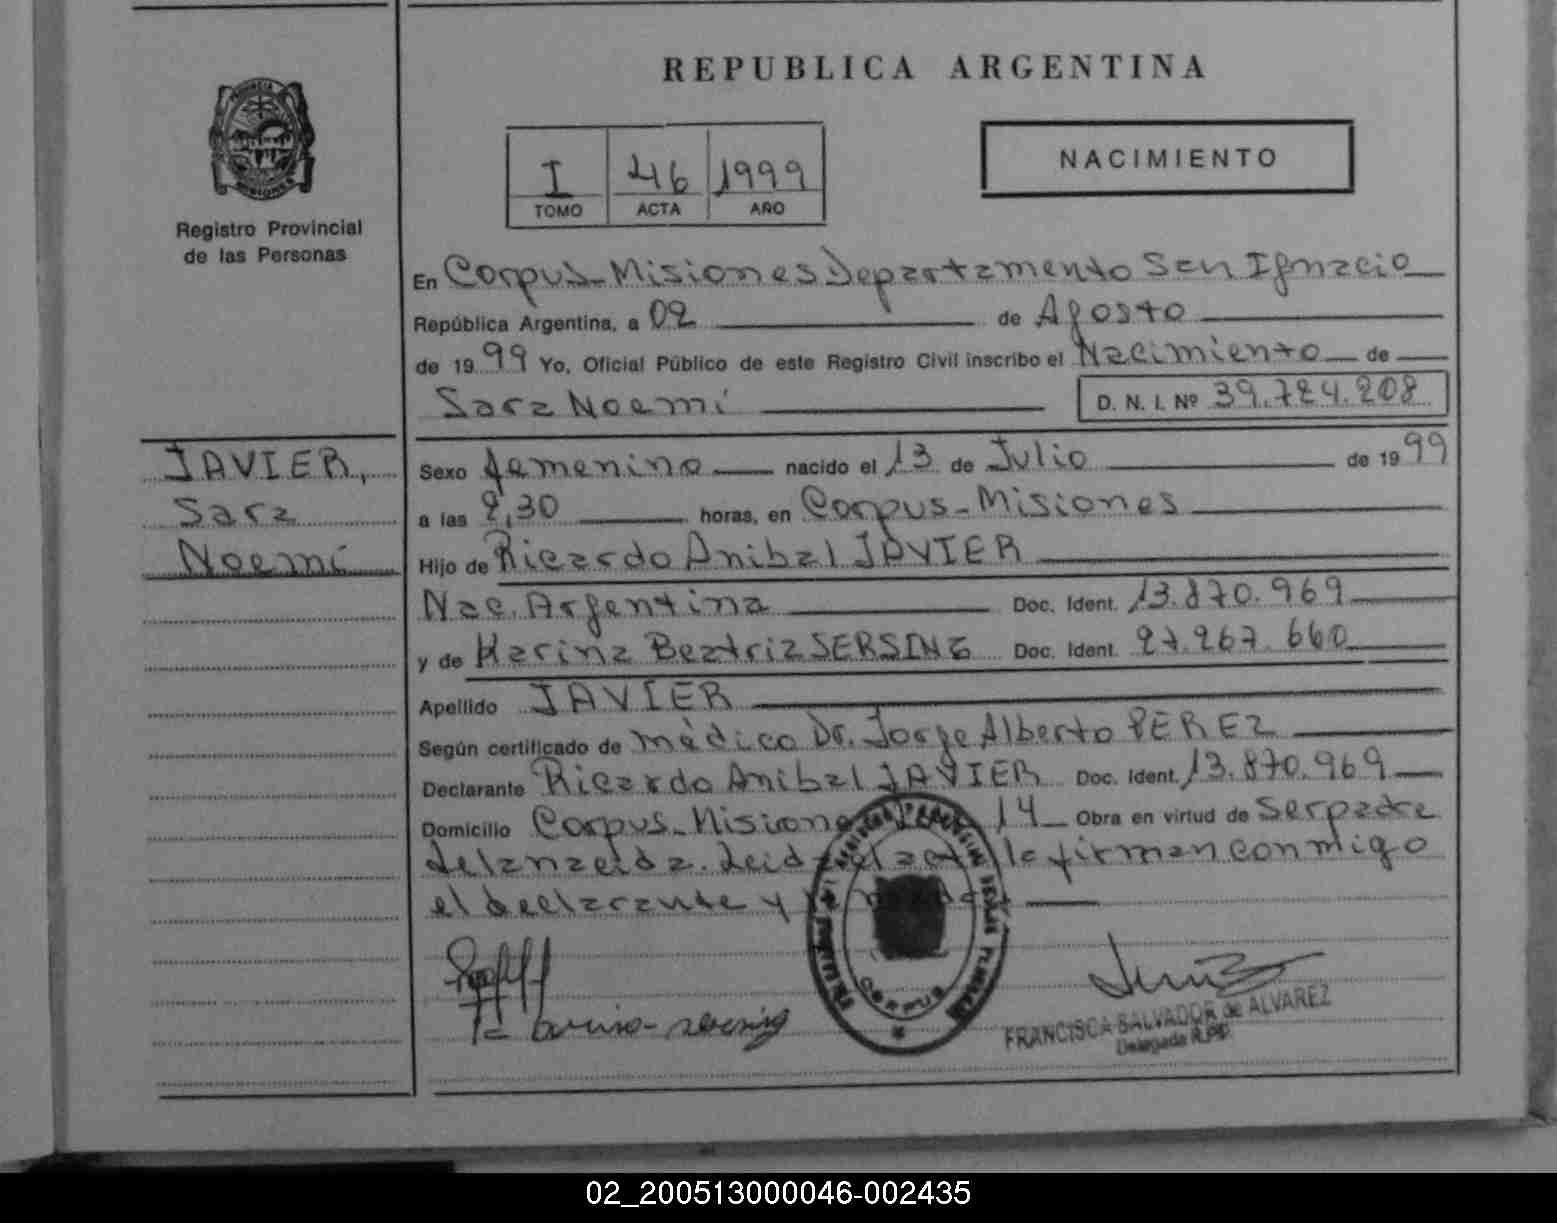 REPUBLICA ARGENTINA
PROVINCIA
MISIONES
Registro Provincial
de las Personas
I 46 1999
TOMO ACTA AÑO
NACIMIENTO
En Corpus-Misiones Departamento San Ignacio
República Argentina, a 02 de Agosto
de 1999 Yo, Oficial Público de este Registro Civil inscribo el Nacimiento de
Sara Noemí D. N. I. Nº 39.724.208
JAVIER,
Sara
Noemí
Sexo femenino nacido el 13 de Julio de 1999
a las 2,30 horas, en Corpus-Misiones
Hijo de Ricardo Anibal JAVIER
Nac. Argentina Doc. Ident. 13.870.969
y de Karina Beatriz SERSING Doc. Ident. 27.267.660
Apellido JAVIER
Según certificado de médico Dr. Jorge Alberto PEREZ
Declarante Ricardo Anibal JAVIER Doc. Ident. 13.870.969
Domicilio Corpus-Misiones 14 Obra en virtud de Ser padre
de la nacida. Leida el acta la firman conmigo
el declarante y
CORPUS
FRANCISCA SALVADOR de ALVAREZ
Delegada R.P.P.
02_200513000046-002435